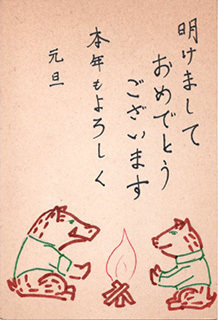 明けまして
おめでとう
ございます
本年もよろしく
元旦